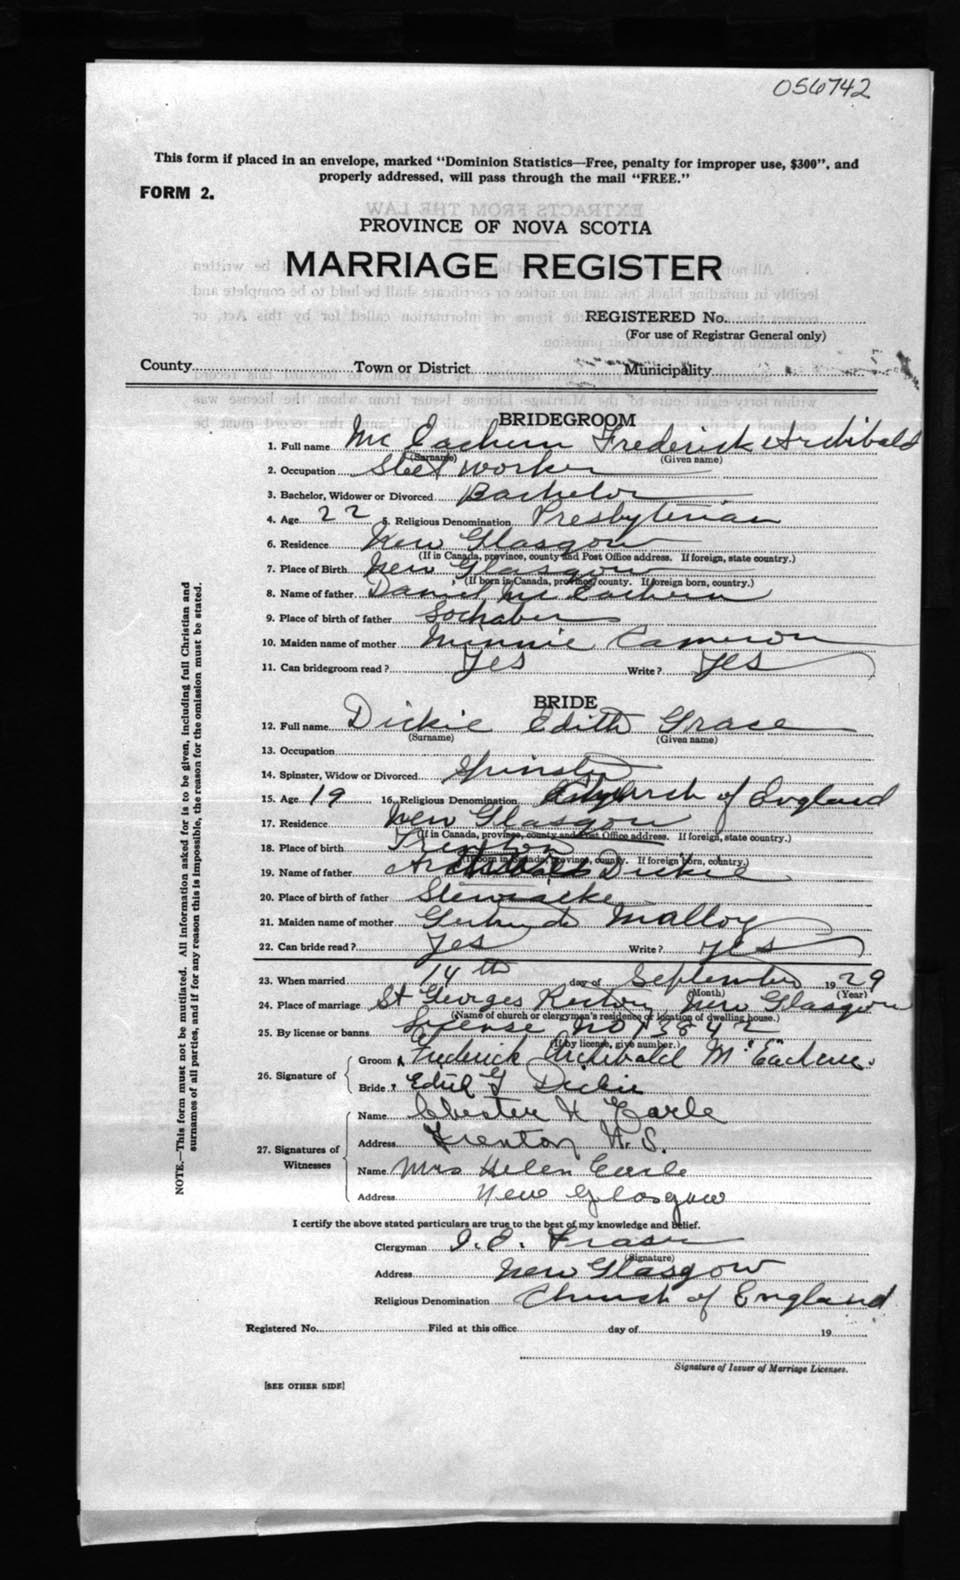 056742
This form if placed in an envelope, marked "Dominion Statistics—Free, penalty for improper use, $300", and
properly addressed, will pass through the mail "FREE."
FORM 2.
PROVINCE OF NOVA SCOTIA
MARRIAGE REGISTER
REGISTERED No.
(For use of Registrar General only)
County Town or District Municipality
BRIDEGROOM
1. Full name Mc Eachern Frederick Archibald
(Surname) (Given name)
2. Occupation Steel worker
3. Bachelor, Widower or Divorced Bachelor
4. Age 22 5. Religious Denomination Presbyterian
6. Residence New Glasgow
(If in Canada, province, county and Post Office address. If foreign, state country.)
7. Place of Birth New Glasgow
(If born in Canada, province, county. If foreign born, country.)
8. Name of father Daniel Mc Eachern
9. Place of birth of father Lochaber
10. Maiden name of mother Minnie Cameron
11. Can bridegroom read? Yes Write? Yes
BRIDE
12. Full name Dickie Edith Grace
(Surname) (Given name)
13. Occupation
14. Spinster, Widow or Divorced Spinster
15. Age 19 16. Religious Denomination Church of England
17. Residence New Glasgow
(If in Canada, province, county and Post Office address. If foreign, state country.)
18. Place of birth Trenton
(If born in Canada, province, county. If foreign born, country.)
19. Name of father Archibald Dickie
20. Place of birth of father Stewiacke
21. Maiden name of mother Gertrude Malloy
22. Can bride read? Yes Write? Yes
23. When married 14th day of September 1929
(Month) (Year)
24. Place of marriage St Georges Rectory New Glasgow
(Name of church or clergyman's residence or location of dwelling house.)
25. By license or banns License No 13842
(If by license, give number.)
26. Signature of
Groom Frederick Archibald McEachern.
Bride Edith G Dickie
27. Signatures of Witnesses
Name Chester H Earle
Address Trenton N.S.
Name Mrs Helen Earle
Address New Glasgow
I certify the above stated particulars are true to the best of my knowledge and belief.
Clergyman Fraser
(Signature)
Address New Glasgow
Religious Denomination Church of England
Registered No. Filed at this office day of 19
Signature of Issuer of Marriage Licenses.
[SEE OTHER SIDE]
NOTE.—This form must not be mutilated. All information asked for is to be given, including full Christian and
surnames of all parties, and if for any reason this is impossible, the reason for the omission must be stated.